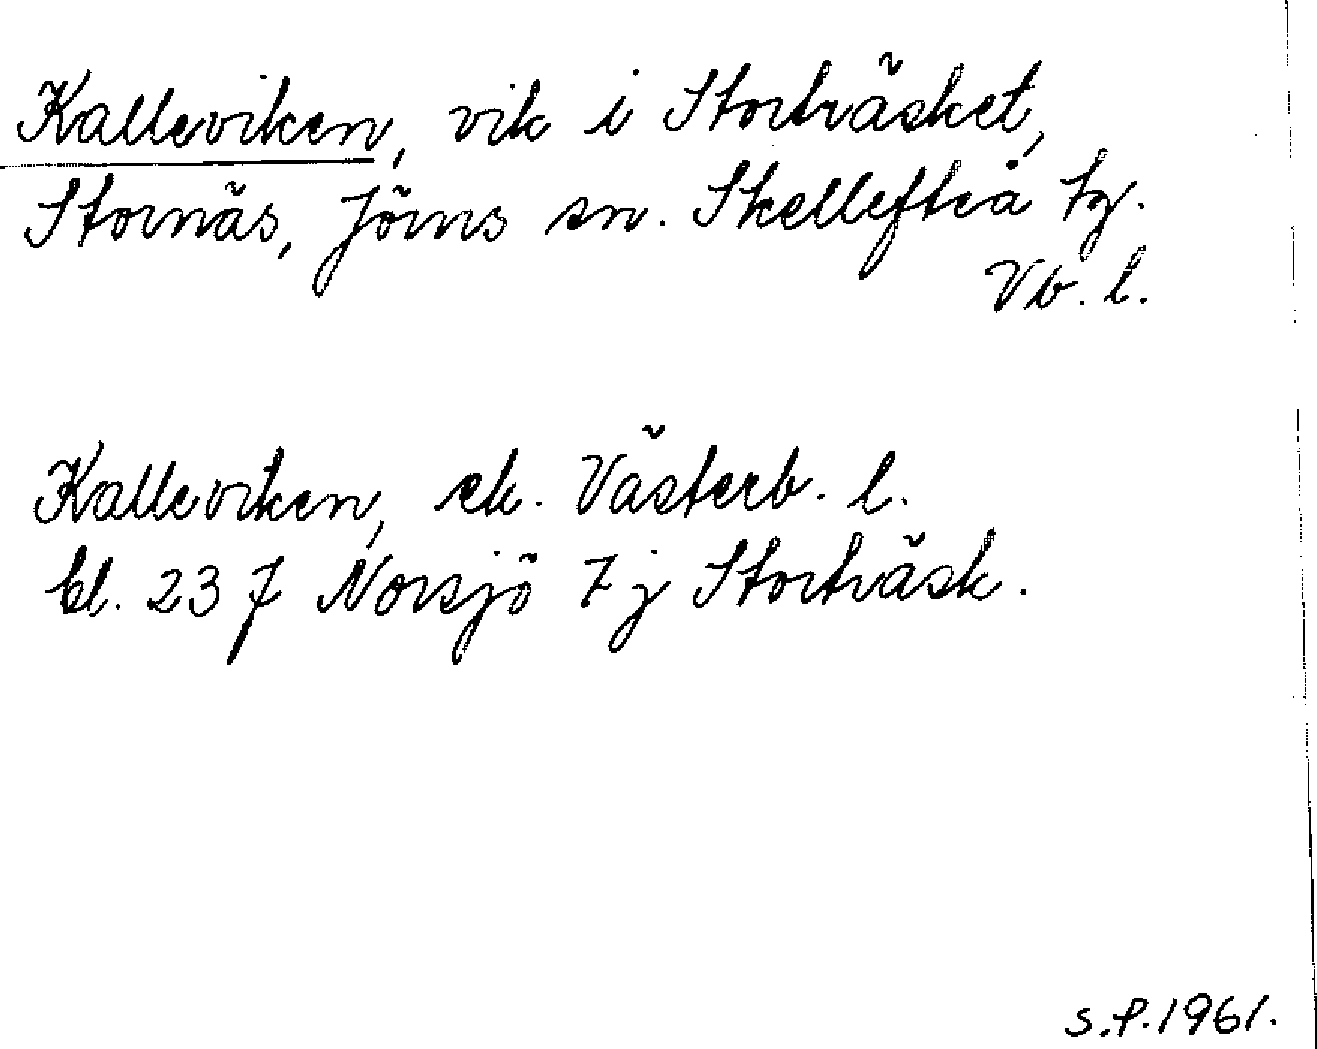 Kalleviken, vik i Storträsket,
Stornäs, Jörns sn. Skellefteå tg.
Vb. l.
Kalleviken, ek. Västerb. l.
bl. 23 J Norsjö 7 j Storträsk.
S.P. 1961.